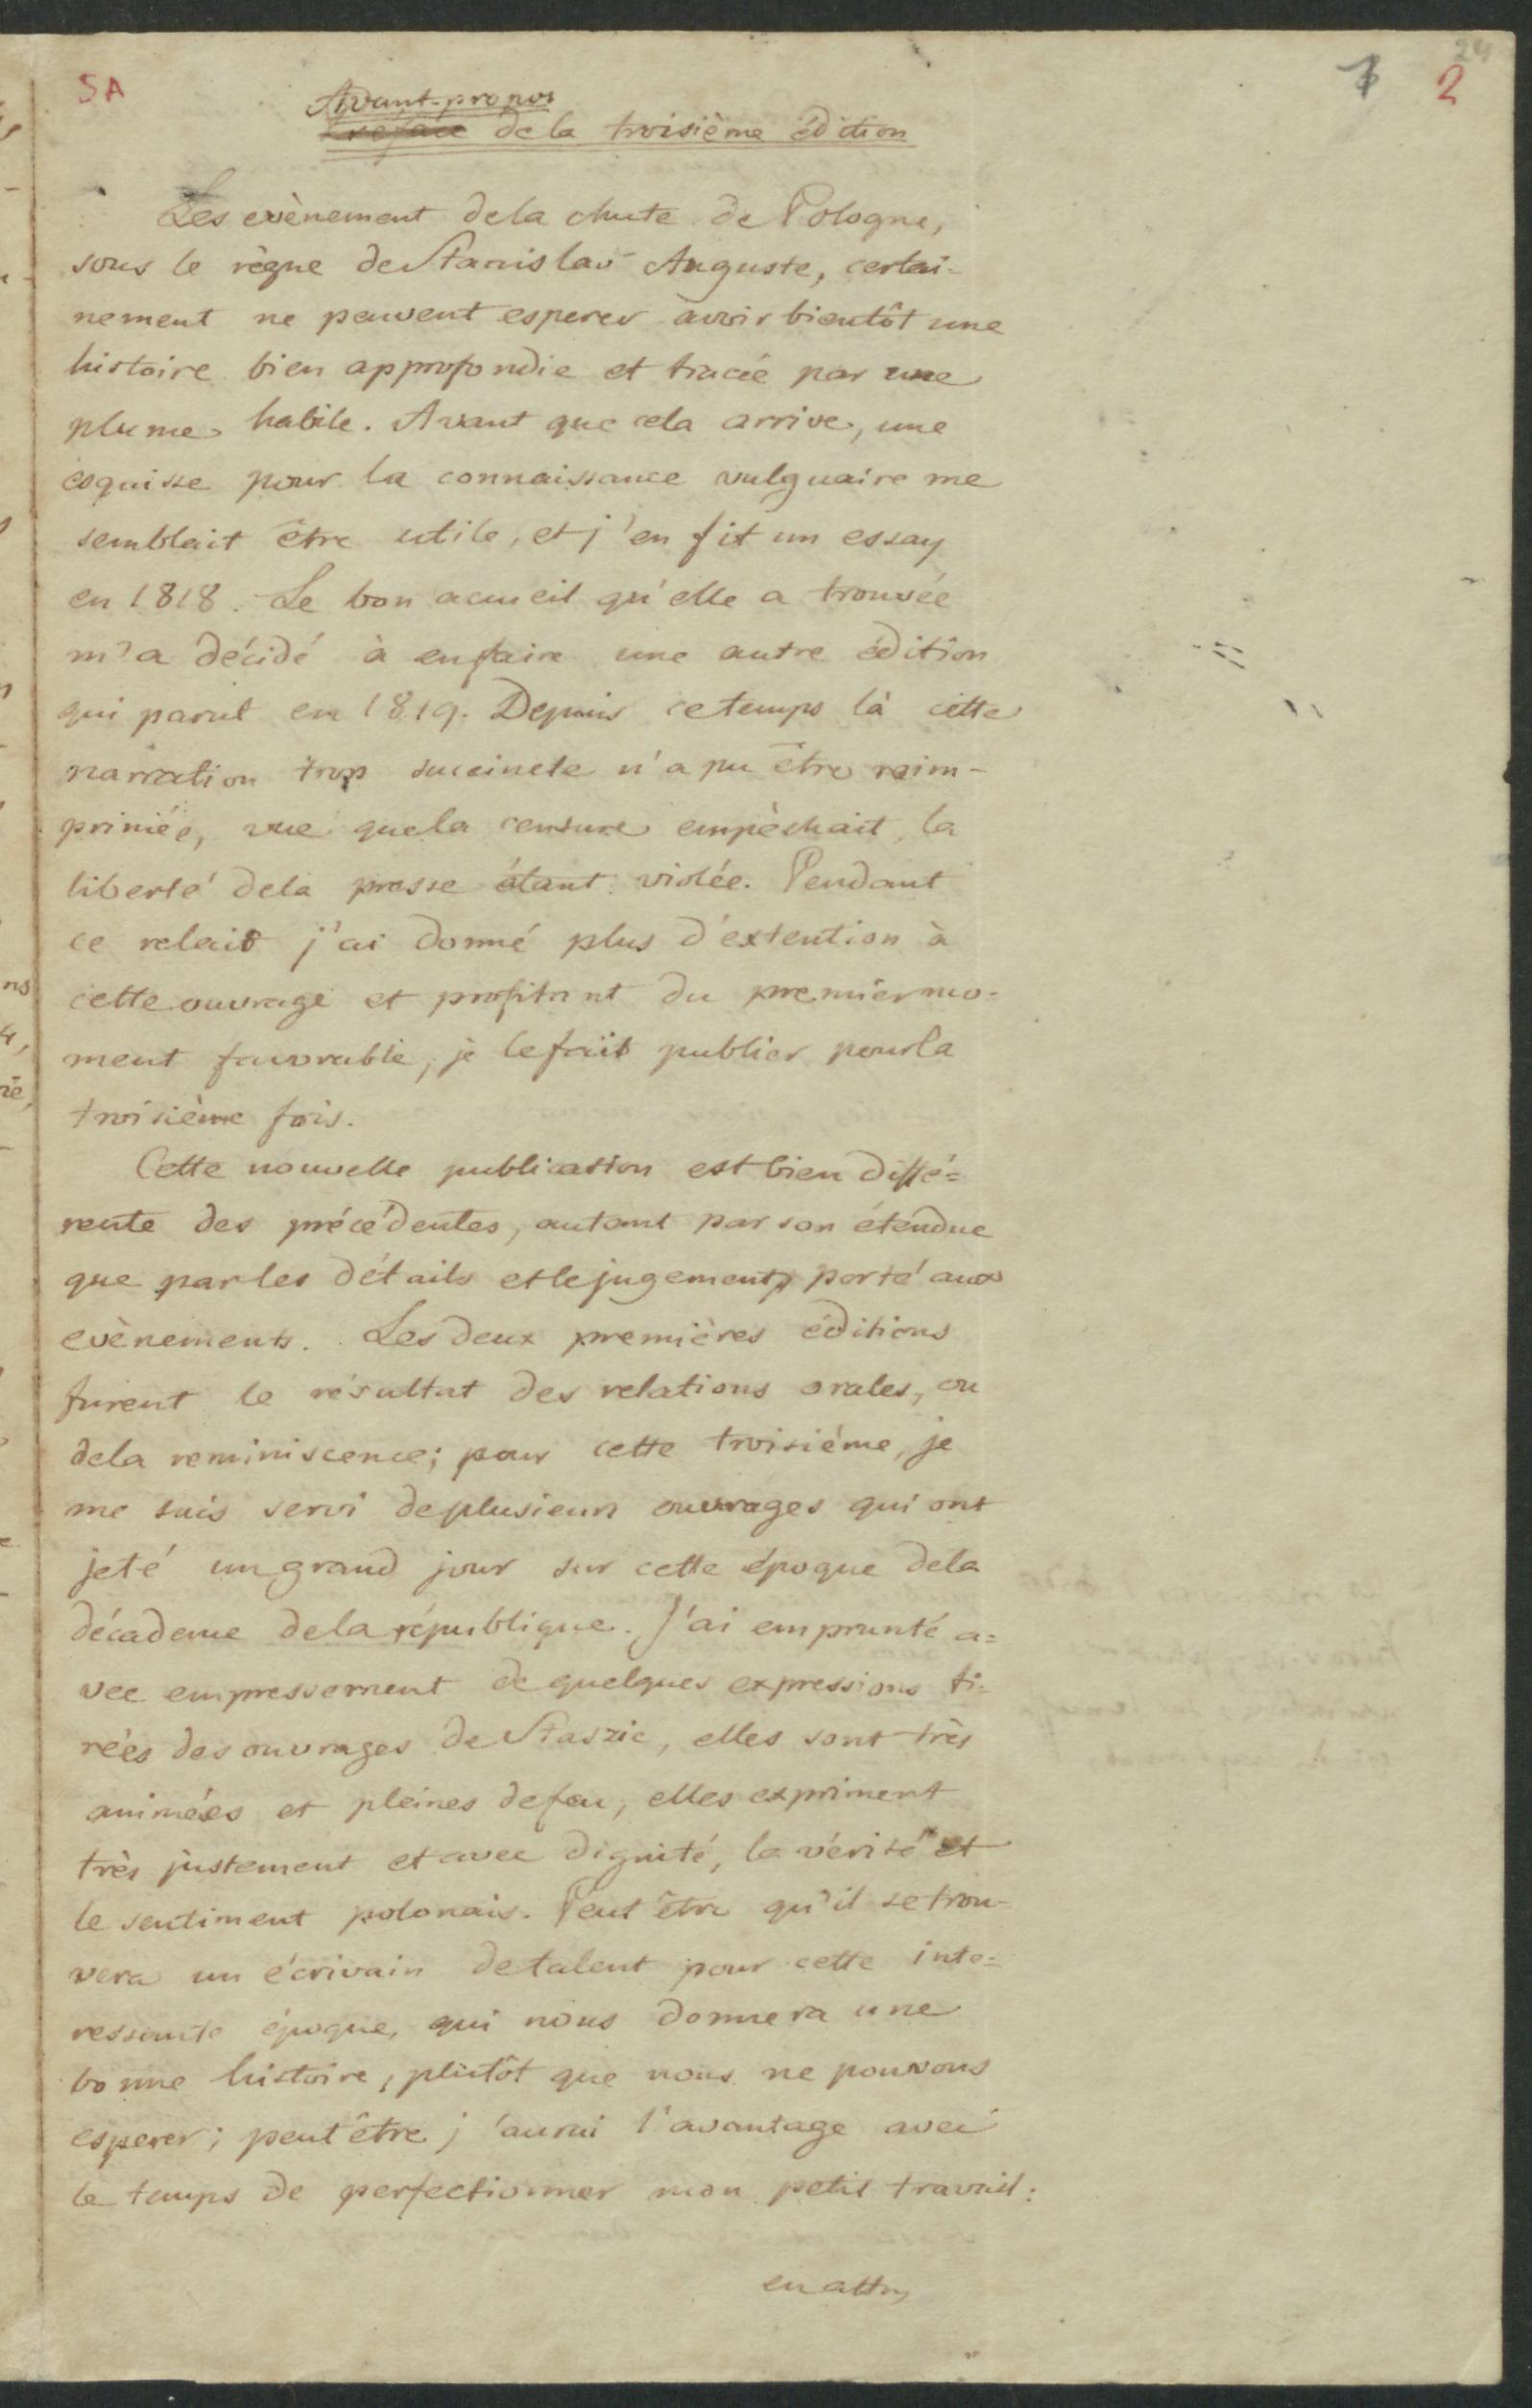 5A
7 2 24
Avant-propos
Preface de la troisième édition
Les evènement de la chute de Pologne,
sous le règne de Stanislav Auguste, certai-
nement ne peuvent esperer avoir bientôt une
histoire bien approfondie et tracée par une
plume habile. Avant que cela arrive, une
esquisse pour la connaissance vulguaire me
semblait être utile, et j'en fit un essay
en 1818. Le bon acueil qu'elle a trouvée
m'a décidé à en faire une autre édition
qui parut en 1819. Depuis ce temps là cette
narration trop succincte n'a pu être reim-
primée, vue que la censure empèchait, la
liberté de la presse étant violée. Pendant
ce relais j'ai donné plus d'extention à
cette ouvrage et profitant du premier mo-
ment favorable, je le fait publier pour la
troisième fois.
Cette nouvelle publication est bien diffé-
rente des précédentes, autant par son étendue
que par les détails et le jugement porté aux
evènements. Les deux premières éditions
furent le résultat des relations orales, ou
de la reminiscence; pour cette troisième, je
me suis servi de plusieurs ouvrages qui ont
jeté un grand jour sur cette époque de la
décadence de la république. J'ai emprunté a-
vec empressement de quelques expressions ti-
rées des ouvrages de Staszic, elles sont très
animées et pleines de feu, elles expriment
très justement et avec dignité, la vérité et
le sentiment polonais. Peut être qu'il se trou-
vera un écrivain de talent pour cette inte-
ressante époque, qui nous donnera une
bonne histoire, plutôt que nous ne pouvons
esperer; peut être j'aurai l'avantage avec
le temps de perfectionner mon petit travail:
en attn